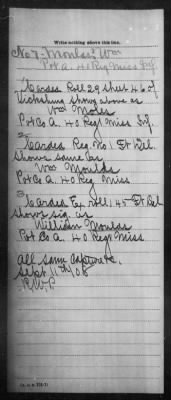 Write nothing above this line.
No 7. Moulds Wm
Pvt A. 40 Reg Miss Inf
1. Carded Roll 29 sheet 46 of
Vicksburg shows above as
Wm Moles
Pvt Co A. 40 Reg Miss Inf.
2. Carded Reg. No. 1 Ft Del.
shows same as
Wm Moulds
Pvt Co A 40 Reg Miss
3. Carded Reg. roll 45 Ft Del
shows sig. as
William Moulds
Pvt Co A. 40 Reg Miss.
All same capture.
Sept 11th/08